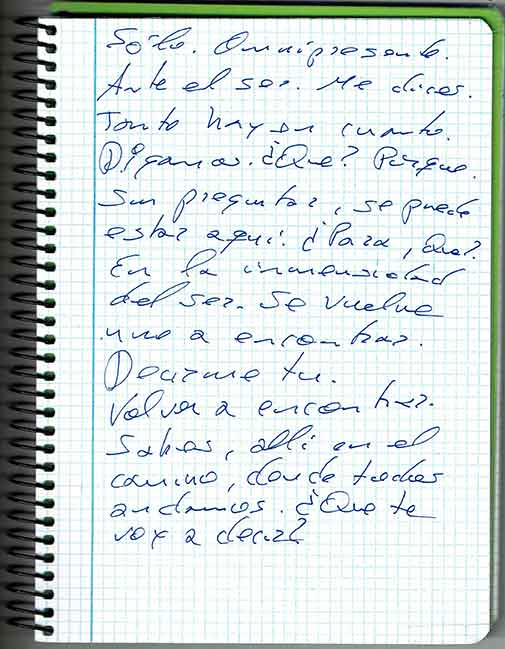 Sólo. Omnipresente.
Ante el ser. Me dices.
Tanto hay en cuanto.
Díganos. ¿Que? Porque.
Sin preguntar, se puede
estar aquí. ¿Para, Que?
En la inmensidad
del ser. Se vuelve
uno a encontrar.
Decirme tu.
Volver a encontrar.
Sabes, allí en el
camino, donde todos
andamos. ¿Que te
voy a decir?